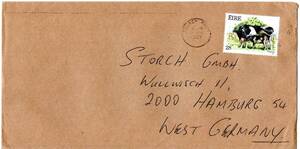 ÉIRE
28
STORCH GMBH
WULLWISCH 11,
2000 HAMBURG 54
WEST GERMANY